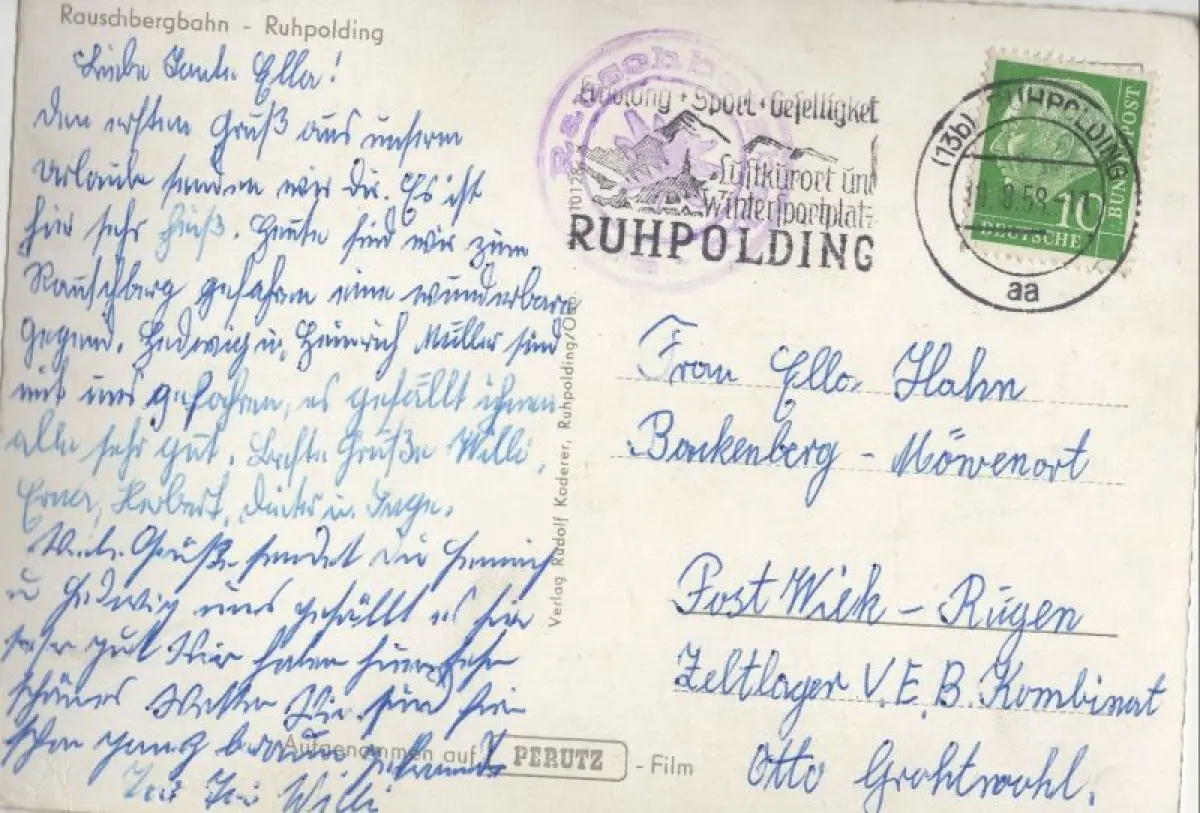 Rauschbergbahn - Ruhpolding
Liebe Tante Ella!
Den ersten Gruß aus unserm
Urlaube senden wir Dir. Es ist
hier sehr heiß. Heute sind wir zum
Rauschberg gefahren eine wunderbare
Gegend. Hedwig u. Heinrich Müller sind
mit uns gefahren, es gefällt ihnen
alle sehr gut. Beste Grüße Willi,
Erna, Herbert, Dieter u. Inge.
Viele Grüße sendet Dir Heinrich
u Hedwig uns gefällt es hir
sehr gut Wir haben hier sehr
schönes Wetter Wir sind hir
schon ganz braun gebrannt
Willi
Aufgenommen auf PERUTZ - Film
Verlag Rudolf Koderer, Ruhpolding/Obb.
Rauschberg
Erholung + Sport + Geselligkeit
Luftkurort und
Wintersportplatz
RUHPOLDING
(13b) RUHPOLDING
10.8.58
aa
10
DEUTSCHE
BUNDESPOST
Frau Ella Hahn
Bakenberg - Möwenort
Post Wiek - Rügen
Zeltlager V.E.B. Kombinat
Otto Grohtwohl.